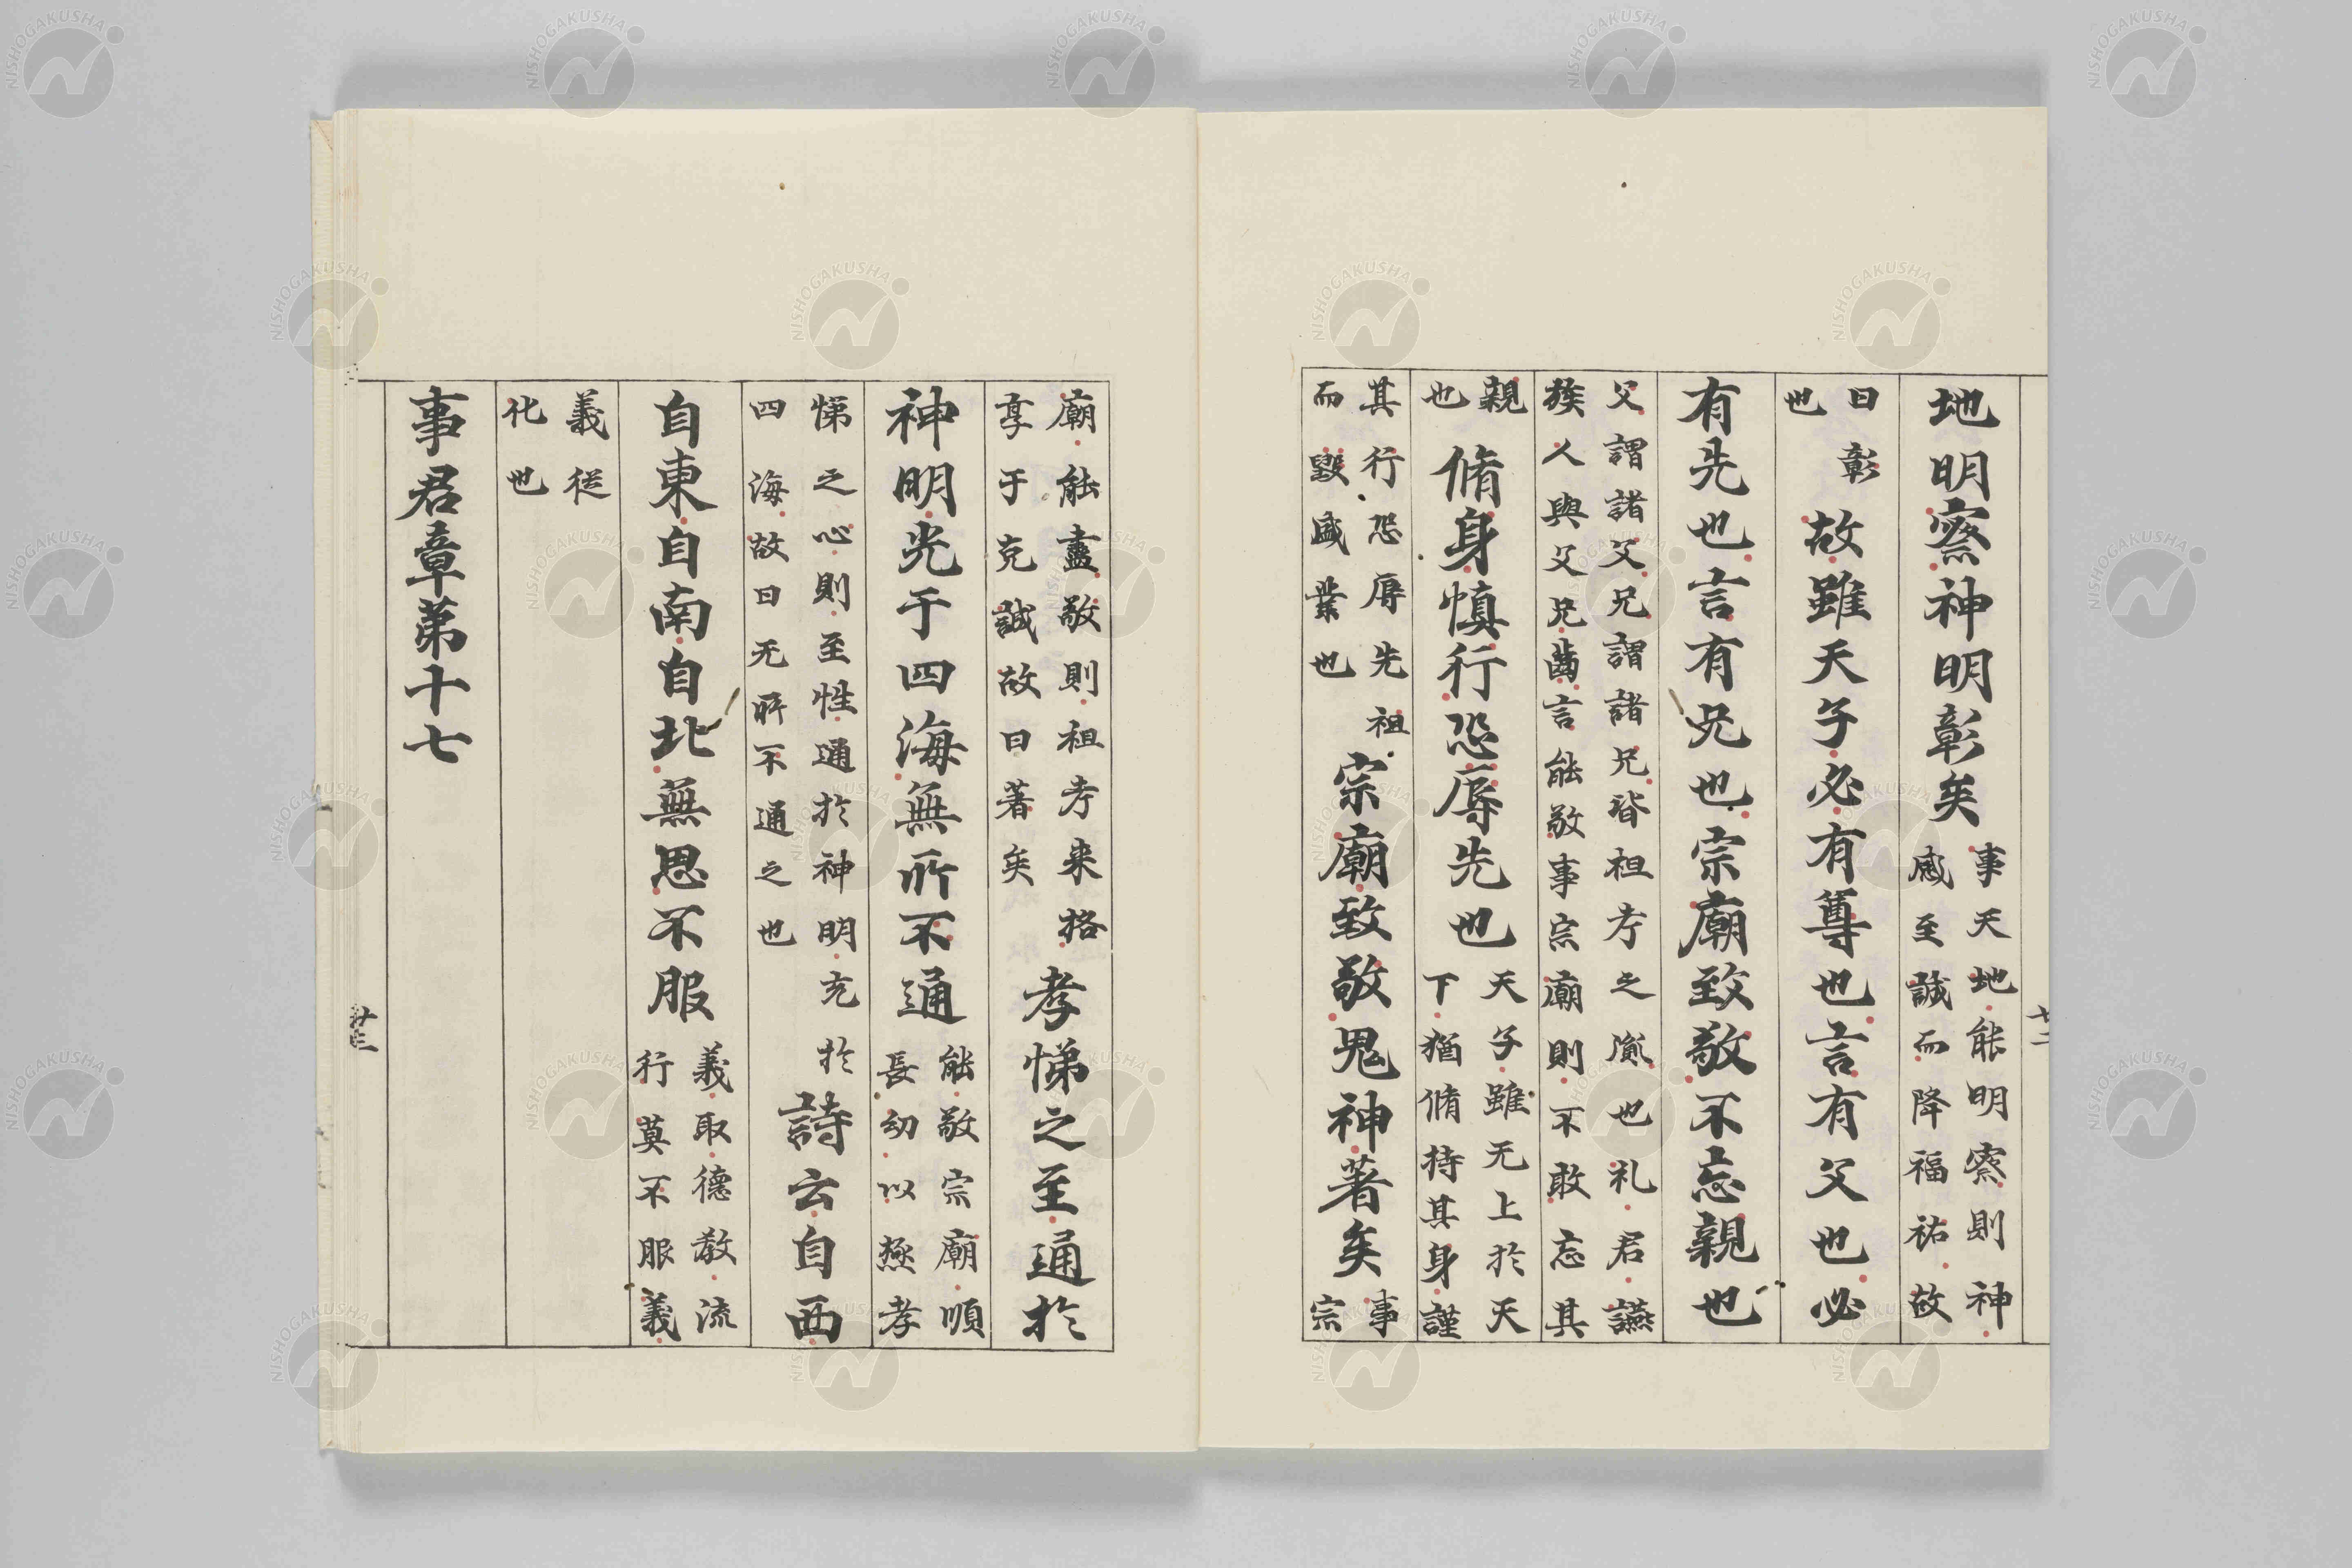 地明察神明彰矣事天地能明察則神
感至誠而降福祐故
曰彰
也故雖天子必有尊也言有父也必
有先也言有兄也宗廟致敬不忘親也
父謂諸父兄謂諸兄皆祖考之胤也礼君讌
族人與父兄齒言能敬事宗廟則不敢忘其
親
也脩身慎行恐辱先也天子雖无上於天
下猶脩持其身謹
其行恐辱先祖
而毀盛業也宗廟致敬鬼神著矣事
宗
廟能盡敬則祖考来格
享于克誠故曰著矣孝悌之至通於
神明光于四海無所不通能敬宗廟順
長幼以極孝
悌之心則至性通於神明充於
四海故曰无所不通之也詩云自西
自東自南自北無思不服義取德教流
行莫不服義
義從
化也
事君章第十七
廿二
廿三
NISHOGAKUSHA